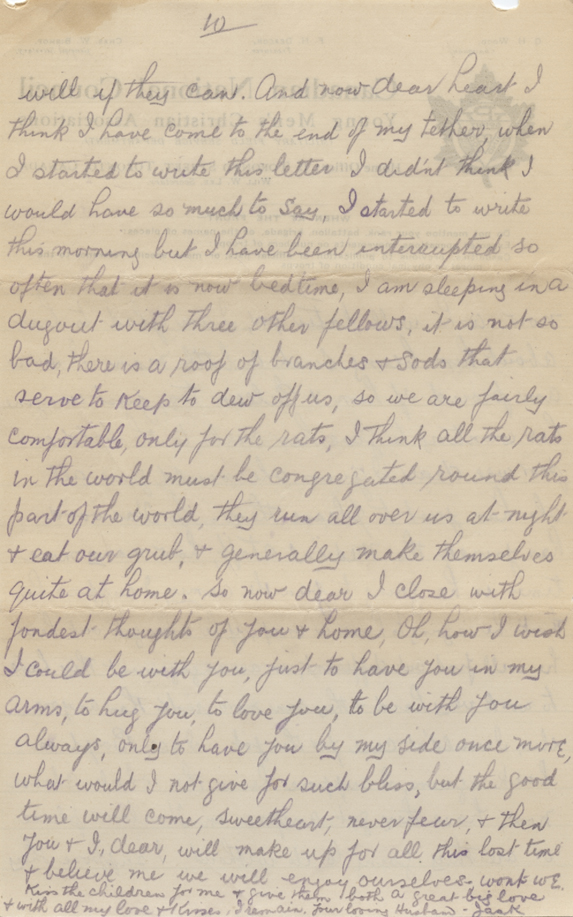 10
will if they can. And now dear heart I
think I have come to the end of my tether, when
I started to write this letter I didn't think I
would have so much to say, I started to write
this morning but I have been interrupted so
often that it is now bedtime, I am sleeping in a
dugout with three other fellows, it is not so
bad, there is a roof of branches & sods that
serve to keep to dew off us, so we are fairly
comfortable, only for the rats, I think all the rats
in the world must be congregated round this
part of the world, they run all over us at night
& eat our grub, & generally make themselves
quite at home. So now dear I close with
fondest thoughts of you & home, Oh, how I wish
I could be with you, just to have you in my
arms, to hug you, to love you, to be with you
always, only to have you by my side once more,
what would I not give for such bliss, but the good
time will come, sweetheart, never fear, & then
you & I, dear, will make up for all this lost time
& believe me we will enjoy ourselves - wont we.
Kiss the children for me & give them both a great big love
& with all my love & kisses, I remain, your loving Husband - Jack
Canadian National Council
Young Men's Christian Association